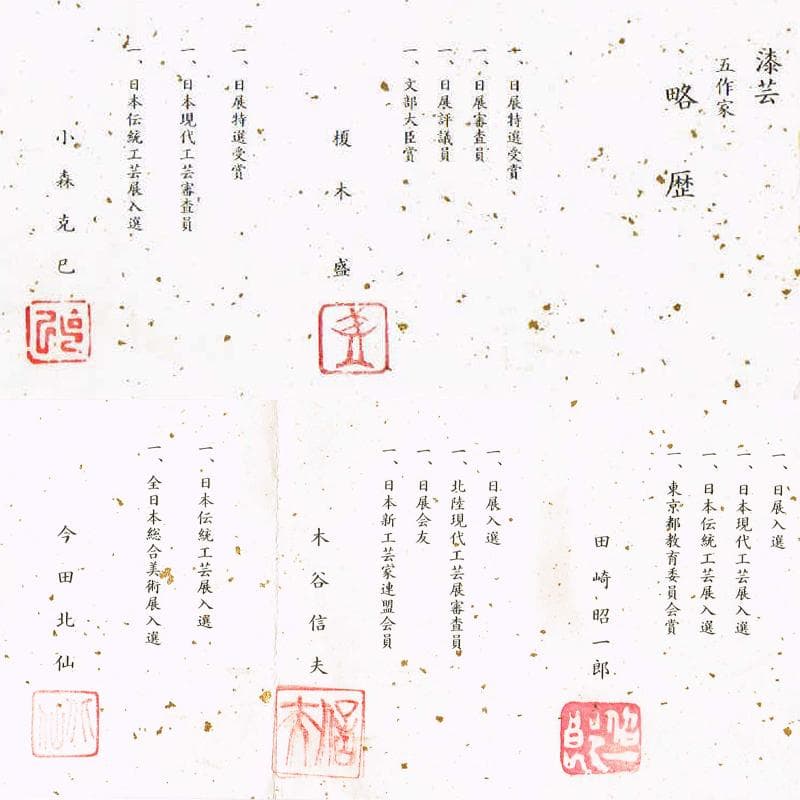 漆芸
五作家
略歴
一、日展特選受賞
一、日展審査員
一、日展評議員
一、文部大臣賞
榎木盛
一、日展特選受賞
一、日本現代工芸審査員
一、日本伝統工芸展入選
小森克巳
一、日展入選
一、日本現代工芸展入選
一、日本伝統工芸展入選
一、東京都教育委員会賞
田崎昭一郎
一、日展入選
一、北陸現代工芸展審査員
一、日展会友
一、日本新工芸家連盟会員
木谷信夫
一、日本伝統工芸展入選
一、全日本総合美術展入選
今田北仙